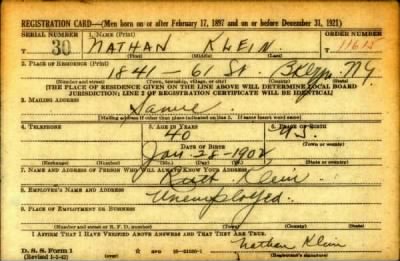 REGISTRATION CARD—(Men born on or after February 17, 1897 and on or before December 31, 1921)
SERIAL NUMBER 1. NAME (Print) ORDER NUMBER
T 30 NATHAN KLEIN
(First) (Middle) (Last)
2. PLACE OF RESIDENCE (Print)
1841 - 66 St. Bklyn NY
(Number and street) (Town, township, village, or city) (County) (State)
[THE PLACE OF RESIDENCE GIVEN ON THE LINE ABOVE WILL DETERMINE LOCAL BOARD
JURISDICTION; LINE 2 OF REGISTRATION CERTIFICATE WILL BE IDENTICAL]
3. MAILING ADDRESS
Same
[Mailing address if other than place indicated on line 2. If same insert word same]
4. TELEPHONE 5. AGE IN YEARS 6. PLACE OF BIRTH
40
DATE OF BIRTH (Town or county)
Jan. 28 - 1902
(Exchange) (Number) (Mo.) (Day) (Yr.) (State or country)
7. NAME AND ADDRESS OF PERSON WHO WILL ALWAYS KNOW YOUR ADDRESS
Ruth Klein
8. EMPLOYER'S NAME AND ADDRESS
Unemployed
9. PLACE OF EMPLOYMENT OR BUSINESS
(Number and street or R. F. D. number) (Town) (County) (State)
I AFFIRM THAT I HAVE VERIFIED ABOVE ANSWERS AND THAT THEY ARE TRUE.
D. S. S. Form 1
(Revised 1-5-42) (over)
Nathan Klein
(Registrant's signature)